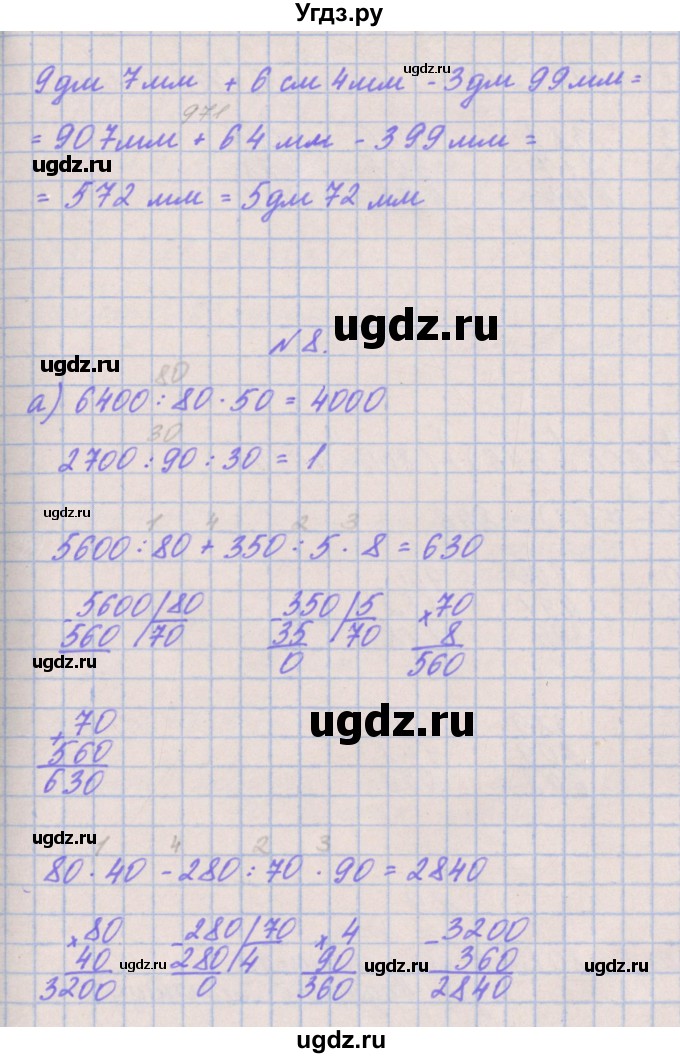 Угдз.ру
9дм 7мм + 6 см 4мм - 3дм 99мм =
971
= 907мм + 64 мм - 399мм =
= 572 мм = 5дм 72 мм
№8.
80
а) 6400 : 80 · 50 = 4000
30
2700 : 90 : 30 = 1
1 4 2 3
5600 : 80 + 350 : 5 · 8 = 630
- 5600 | 80 - 350 | 5 × 70
560 | 70 35 | 70 8
0 560
+ 70
560
630
1 4 2 3
80 · 40 - 280 : 70 · 90 = 2840
× 80 - 280 | 70 × 4 - 3200
40 280 | 4 90 360
3200 0 360 2840
ugdz.ru
ugdz.ru
ugdz.ru
ugdz.ru
ugdz.ru
ugdz.ru
ugdz.ru
ugdz.ru
ugdz.ru
ugdz.ru
ugdz.ru
ugdz.ru
ugdz.ru